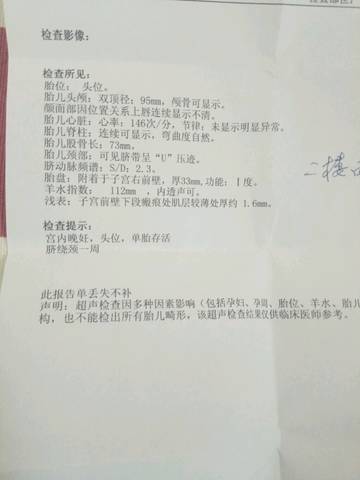 检查影像：
检查所见：
胎位： 头位。
胎儿头颅：双顶径：95mm，颅骨可显示。
颜面部因位置关系上唇连续显示不清。
胎儿心脏：心率：146次/分，节律：未显示明显异常。
胎儿脊柱：连续可显示，弯曲度自然。
胎儿股骨长：73mm。
胎儿颈部：可见脐带呈“U”压迹。
脐动脉频谱：S/D：2.3。
胎盘： 附着于子宫右前壁，厚33mm,功能：Ⅰ度。
羊水指数： 112mm ，内透声可。
浅表：子宫前壁下段瘢痕处肌层较薄处厚约 1.6mm。
二楼
检查提示：
宫内晚妊，头位，单胎存活
脐绕颈一周
此报告单丢失不补
声明：超声检查因多种因素影响（包括孕妇、孕周、胎位、羊水、胎儿
构，也不能检出所有胎儿畸形，该超声检查结果仅供临床医师参考。